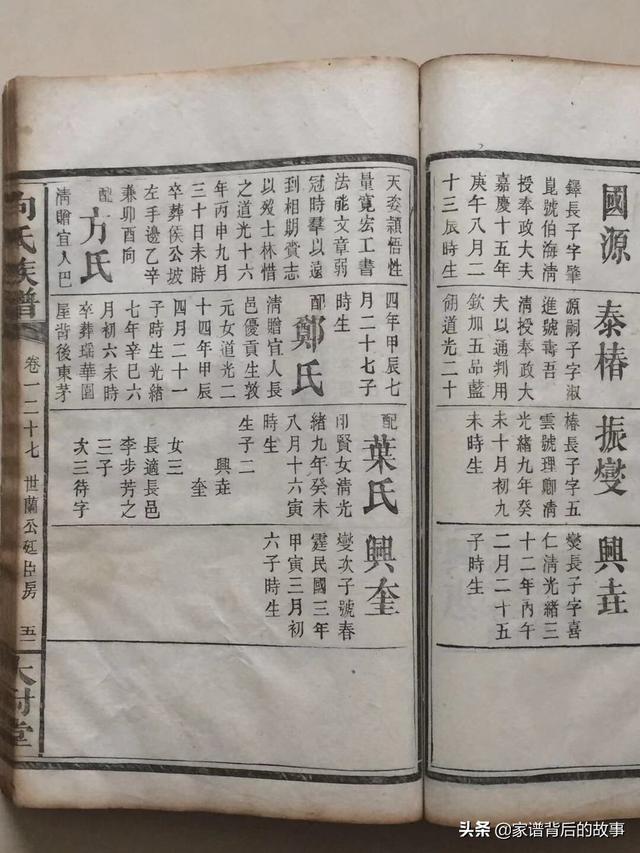 國源
鐸長子字肇
崑號伯海清
授奉政大夫
嘉慶十五年
庚午八月二
十三辰時生
泰椿
源嗣子字淑
進號壽吾
清授奉政大
夫以通判用
欽加五品藍
翎道光二十
振燮
椿長子字五
雲號理卿清
光緒九年癸
未十月初九
未時生
興垚
燮長子字喜
仁清光緒三
十二年丙午
二月二十五
子時生
天姿穎悟性
量寬宏工書
法能文章弱
冠時羣以遠
到相期賞志
以歿士林惜
之道光十六
年丙申九月
三十日未時
卒葬侯公坡
左手邊乙辛
兼卯酉向
配方氏
清贈宜人巴
四年甲辰七
月二十七子
時生
配鄭氏
清贈宜人長
邑優貢生敦
元女道光二
十四年甲辰
四月二十一
子時生光緒
七年辛巳六
月初六未時
卒葬瑶華園
屋背後東茅
配葉氏
印賢女清光
緒九年癸未
八月十六寅
時生
生子二
興垚
奎
女三
長適長邑
李步芳之
三子
次三待字
興奎
燮次子號春
霆民國三年
甲寅三月初
六子時生
向氏族譜
卷一二十七
世蘭公廷臣房
五
头条 @家谱背后的故事